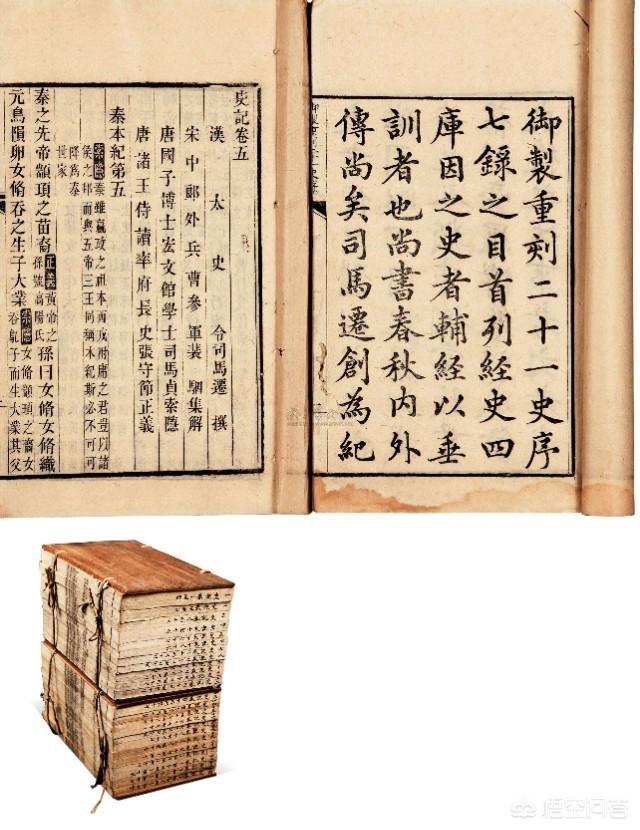 御製重刻二十一史序
七錄之目首列經史四
庫因之史者輔經以垂
訓者也尚書春秋內外
傳尚矣司馬遷創為紀
史記卷五
漢太史令司馬遷撰
宋中郎外兵曹參軍裴駰集解
唐國子博士宏文館學士司馬貞索隱
唐諸王侍讀率府長史張守節正義
秦本紀第五
索隱秦雖嬴政之祖本西戎附庸之君豈以諸
侯之邦而與五帝三王同稱本紀斯必不可可
降為秦
世家
秦之先帝顓頊之苗裔正義黃帝之孫號高陽氏孫曰女脩女脩織
元鳥隕卵女脩吞之生子大業索隱女脩顓頊之裔女吞鳦子而生大業其父
悟空问答